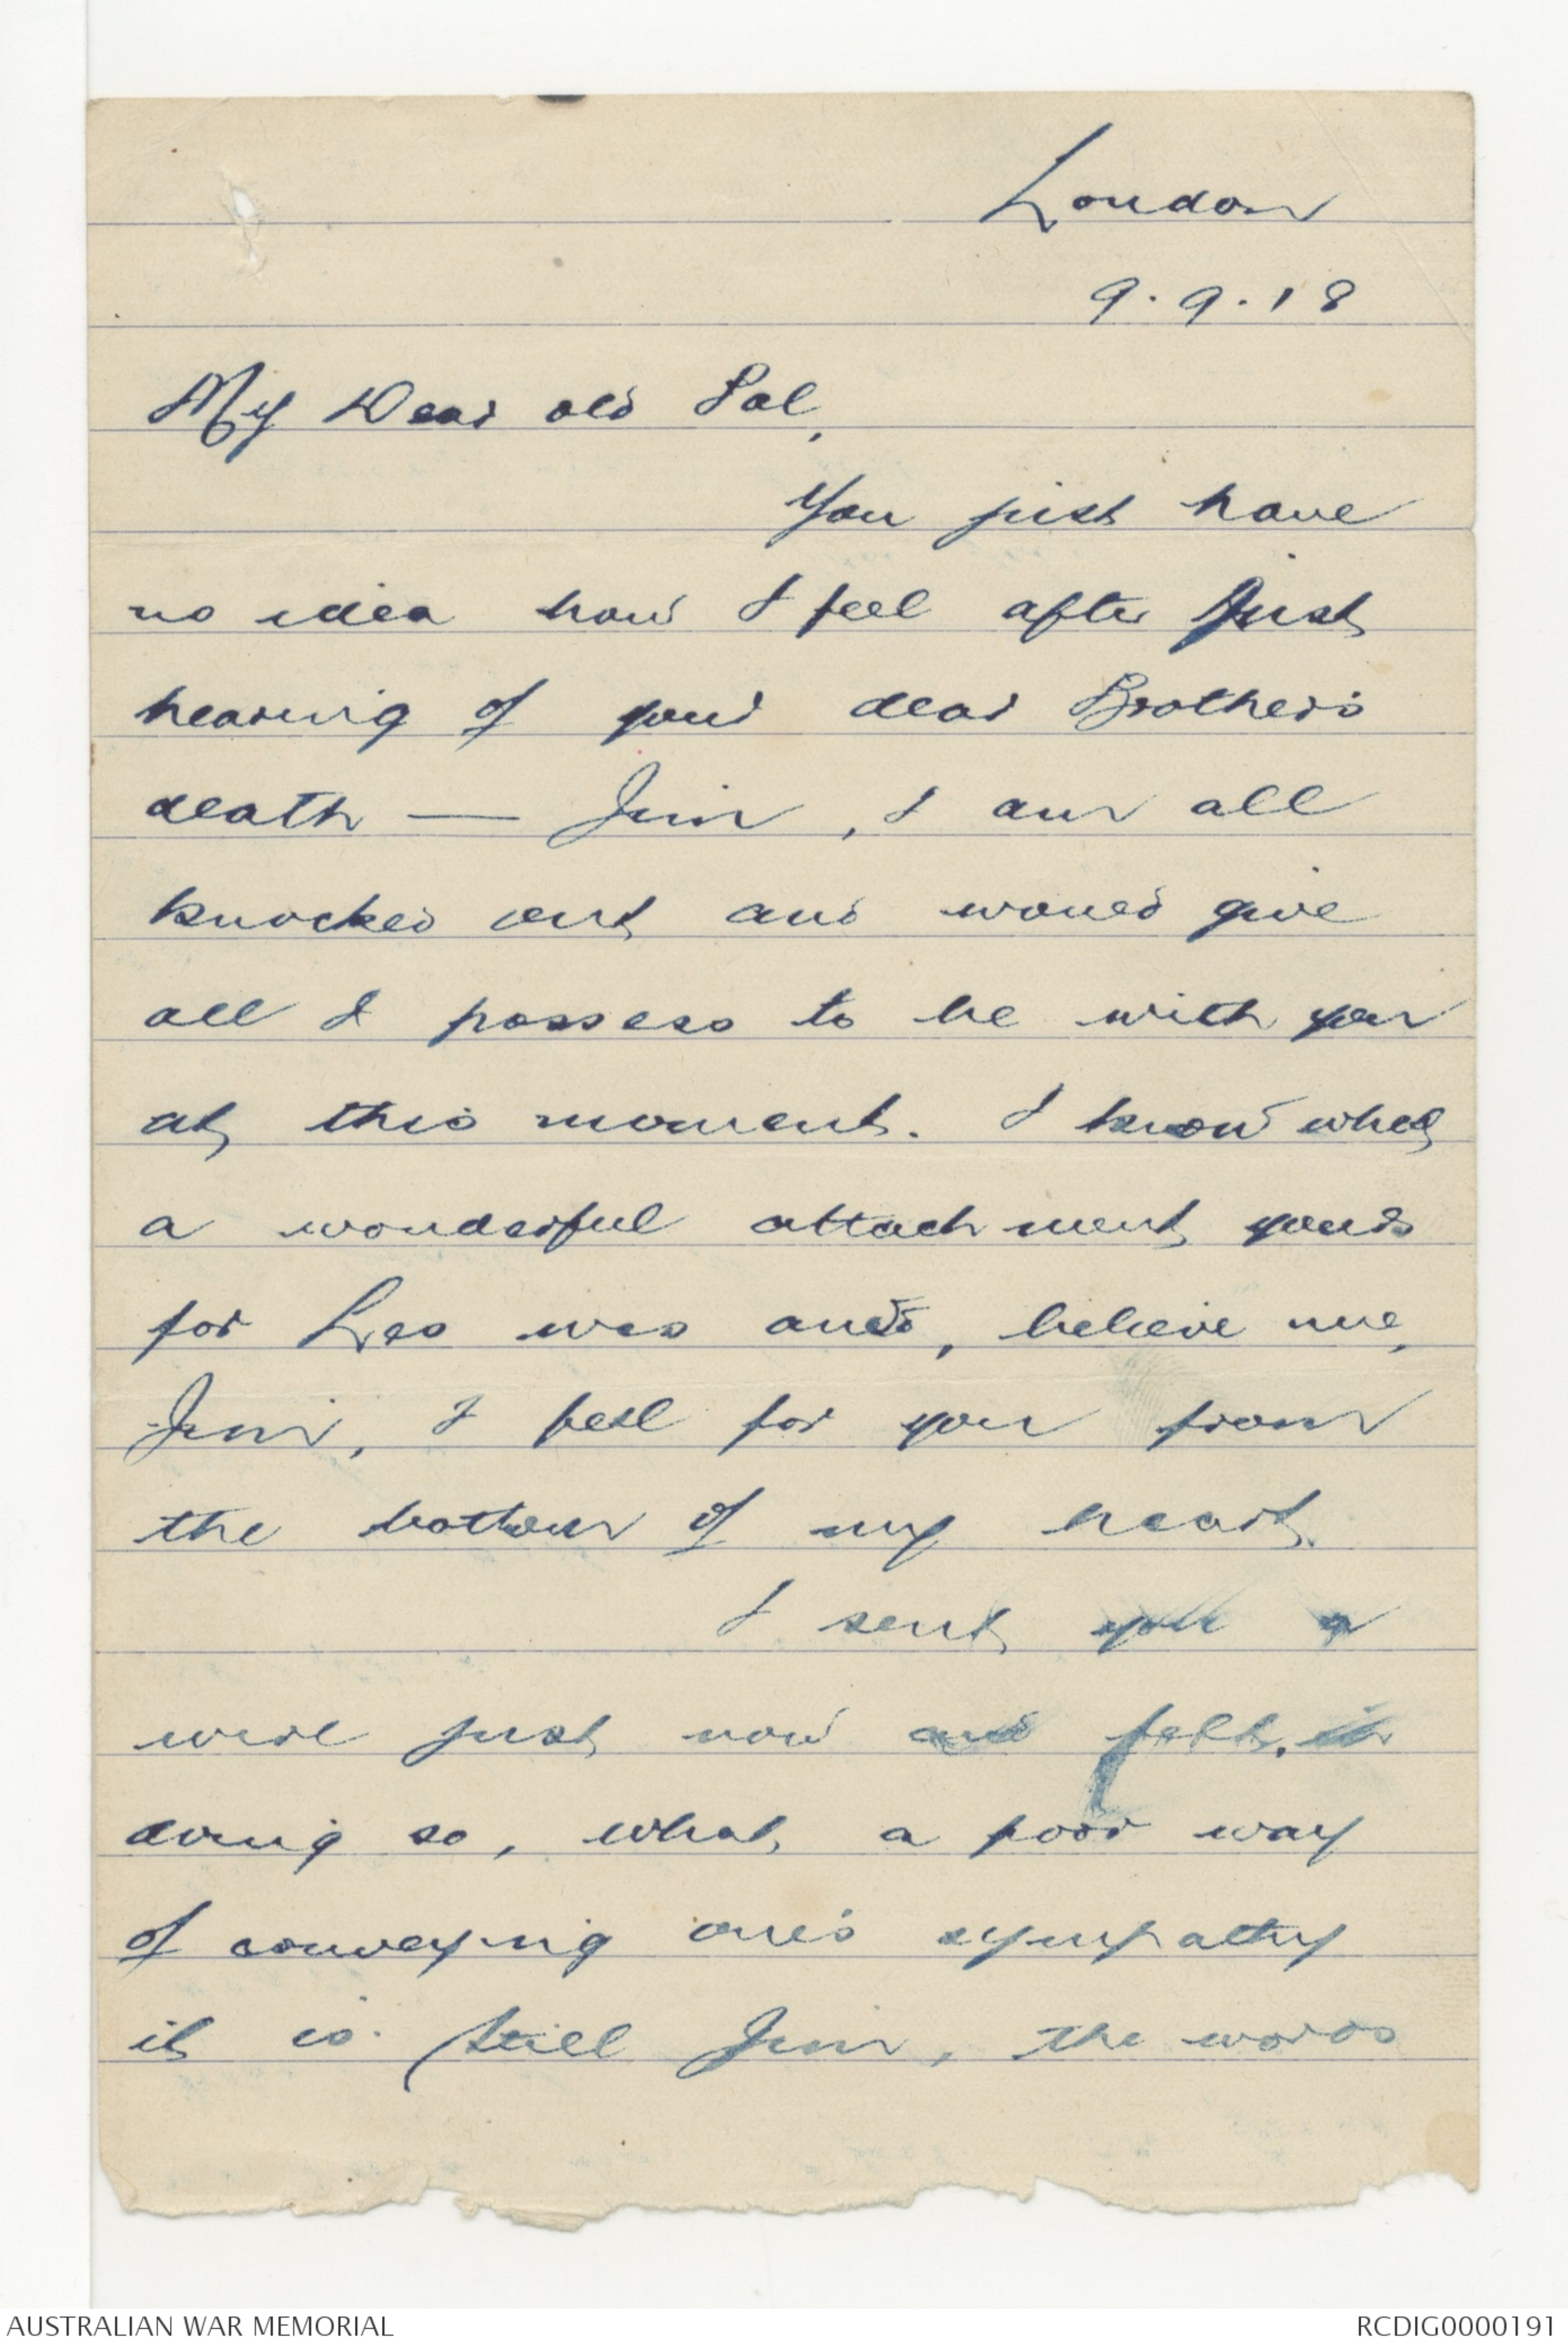 London
9.9.18
My Dear old Pal,
You just have
no idea how I feel after just
hearing of your dear Brother's
death — Jim, I am all
knocked out and would give
all I possess to be with you
at this moment. I know what
a wonderful attachment yours
for Leo was and, believe me,
Jim, I feel for you from
the bottom of my heart.
I sent you a
wire just now and felt, in
doing so, what a poor way
of conveying one's sympathy
it is. Still Jim, the words
AUSTRALIAN WAR MEMORIAL
RCDIG0000191